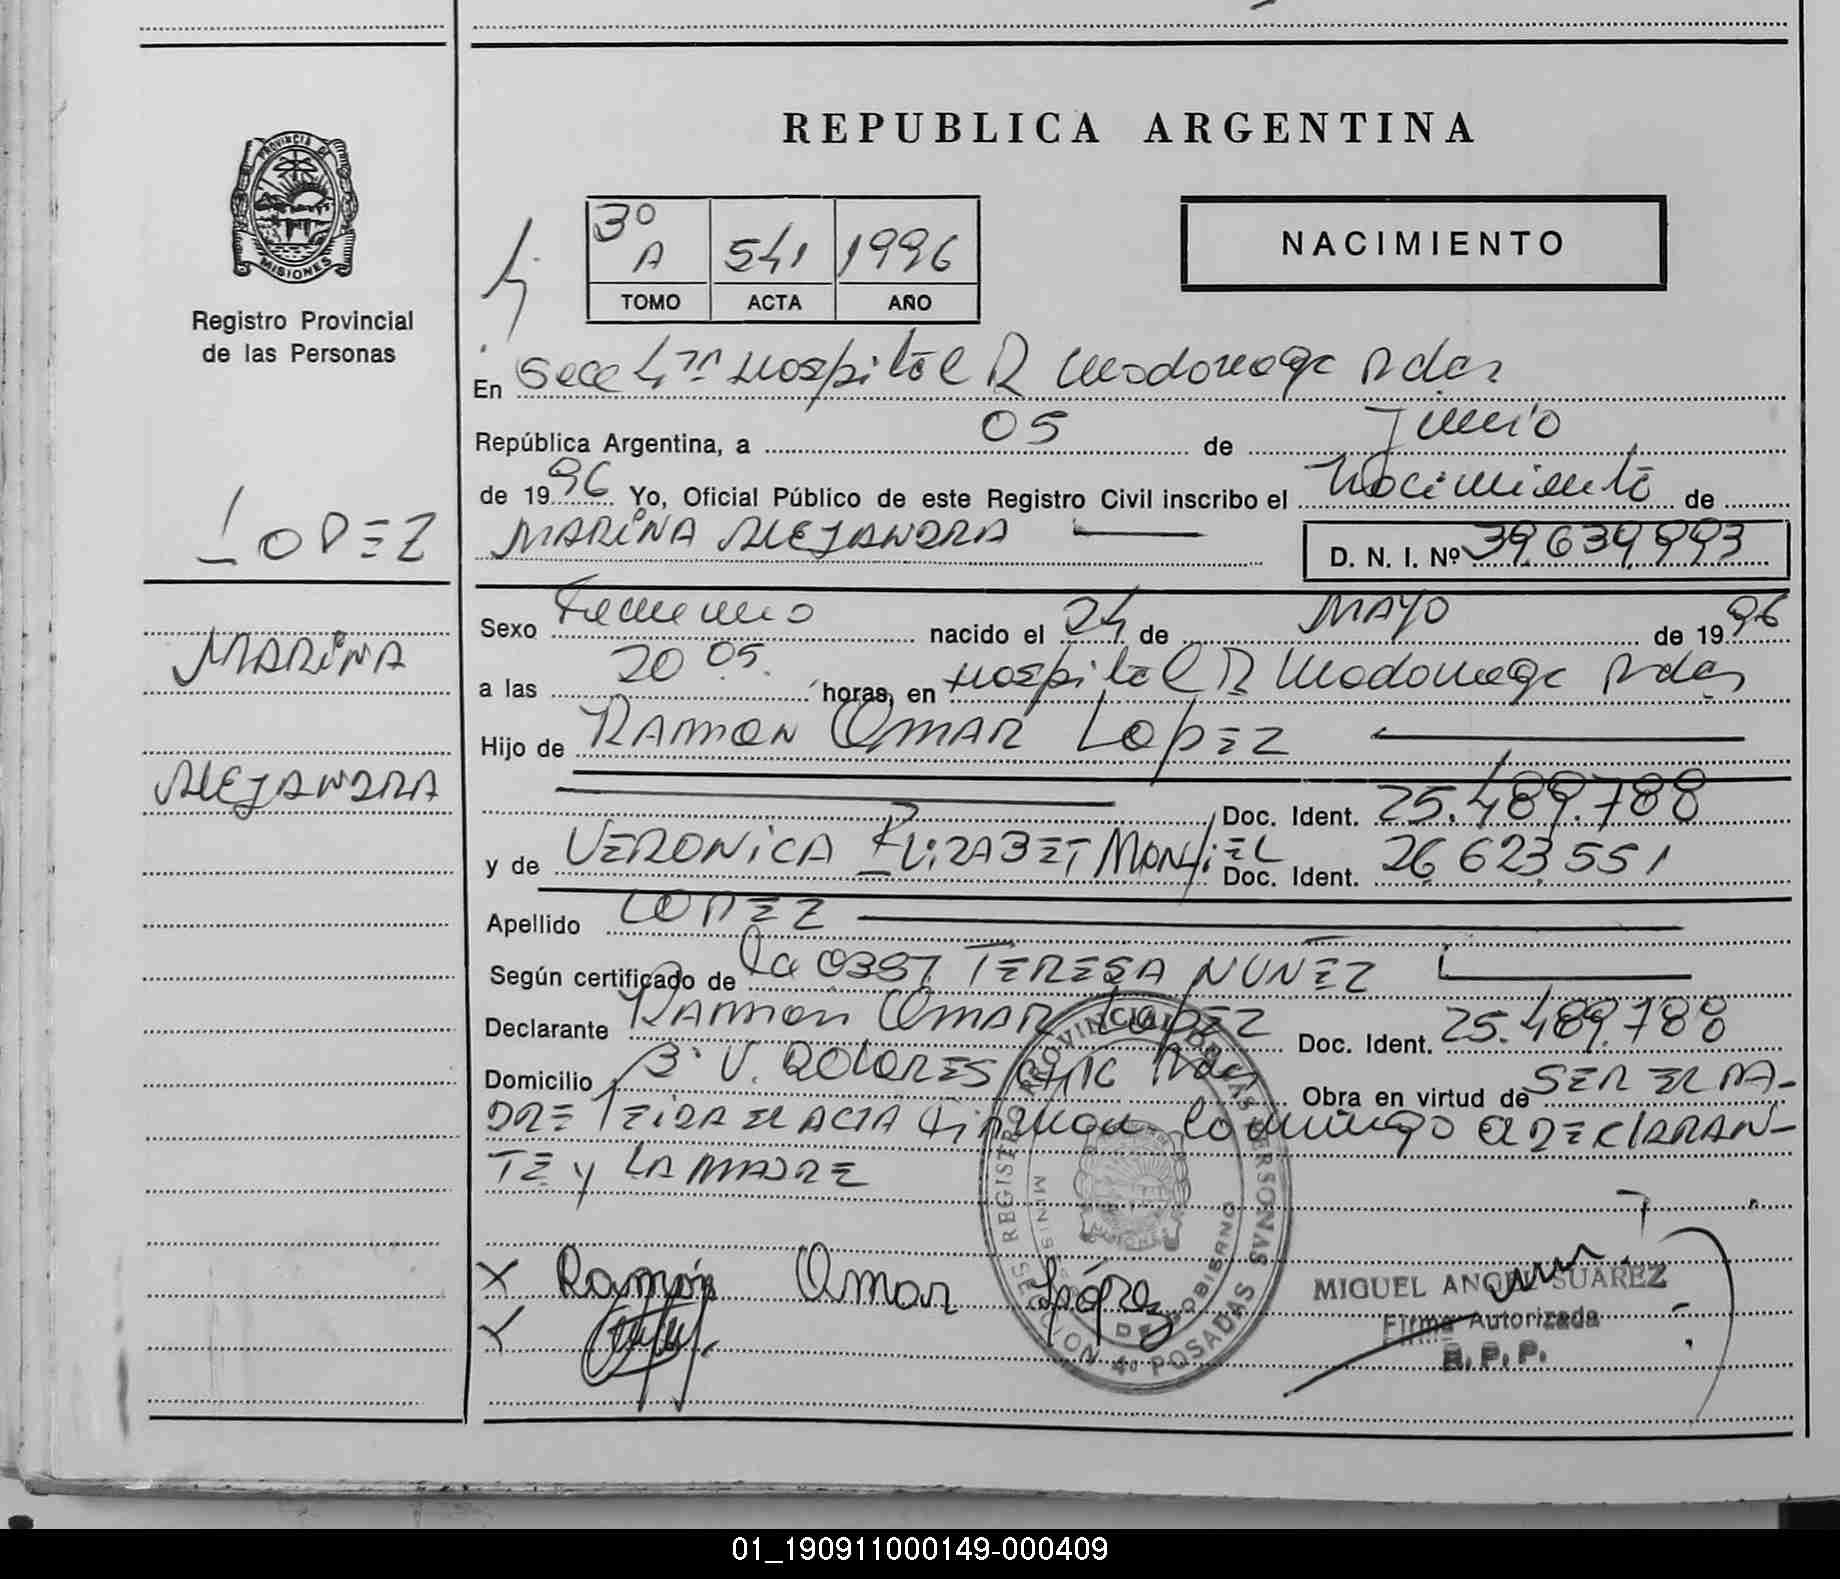 REPUBLICA ARGENTINA
PROVINCIA DE
MISIONES
Registro Provincial
de las Personas
3º
A 541 1996
TOMO ACTA AÑO
NACIMIENTO
En Secc 4ta Hospital R Madariaga Pdas
República Argentina, a 05 de Junio
de 1996 Yo, Oficial Público de este Registro Civil inscribo el Nacimiento de
MARiNA ALEJANDRA
D. N. I. Nº 39.639.993
LOPEZ
MARiNA
ALEJANDRA
Sexo Femenino nacido el 24 de MAYO de 1996
a las 20 05. horas, en Hospital R Madariaga Pdas
Hijo de RAMON OMAR LOpEZ
Doc. Ident. 25.489.788
y de VERONiCA ELiZABET MONTiEL Doc. Ident. 26.623.551
Apellido LOPEZ
Según certificado de TERESA NUÑEZ
Declarante RAMON OMAR LOpEZ Doc. Ident. 25.489.788
Domicilio Bº V. DOLORES Pdas Obra en virtud de SER EL PA-
DRE LEiDA EL ACTA Firman conmigo el DECLARAN-
TE y LA MADRE
x Ramón Omar López
REGISTRO PROVINCIAL DE LAS PERSONAS
MINIS DE GOBIERNO
SECCION 4ª POSADAS
MIGUEL ANGEL SUAREZ
Firma Autorizada
R. P. P.
01_190911000149-000409